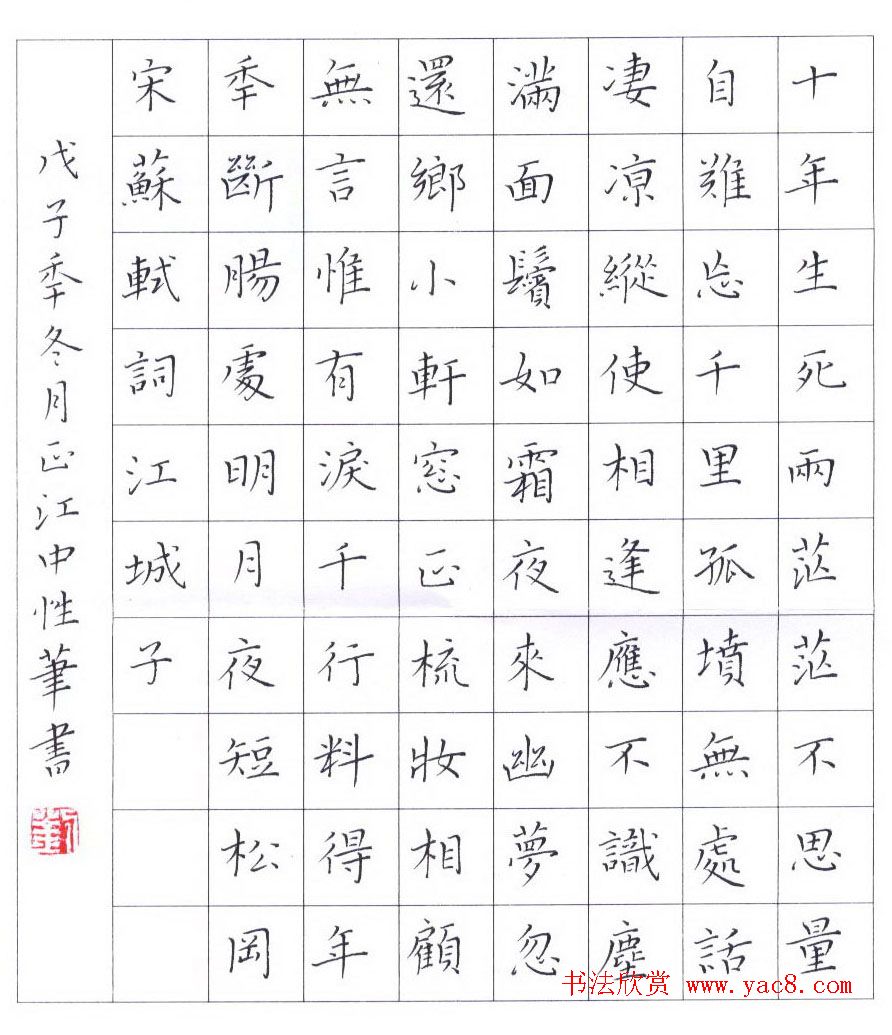 十年生死兩茫茫不思量
自難忘千里孤墳無處話
凄凉縱使相逢應不識塵
滿面鬢如霜夜來幽夢忽
還鄉小軒窓正梳妝相顧
無言惟有淚千行料得年
秊斷腸處明月夜短松岡
宋蘇軾詞江城子
戊子秊冬月正江中性筆書
书法欣赏 www.yac8.com